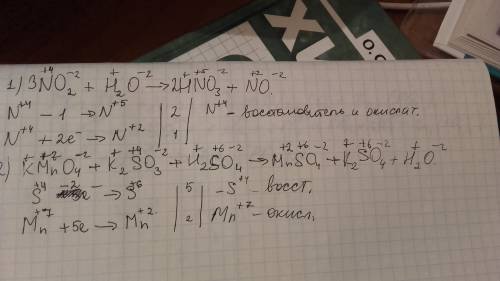 1) 3N⁺⁴O₂⁻² + H₂⁺O⁻² → 2H⁺N⁺⁵O₃⁻² + N⁺²O⁻².
N⁺⁴ - 1 → N⁺⁵ | 2 | N⁺⁴ - восстановитель и окислит.
N⁺⁴ + 2e⁻ → N⁺² | 1 |
2) K⁺Mn⁺⁷O₄⁻² + K₂⁺S⁺⁴O₃⁻² + H₂⁺S⁺⁶O₄⁻² → Mn⁺²S⁺⁶O₄⁻² + K₂⁺S⁺⁶O₄⁻² + H₂⁺O⁻²
S⁺⁴ -2e⁻ → S⁺⁶ | 5 | -S⁺⁴ - восст.
Mn⁺⁷ + 5e → Mn⁺² | 2 | Mn⁺⁷ - окисл,